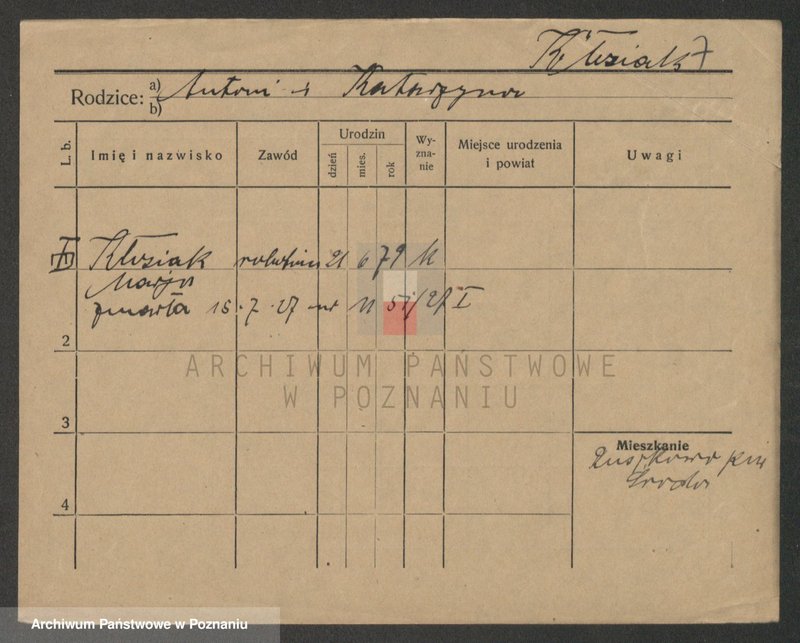 Kłysiak
Rodzice: a) Antoni i Katarzyna
b)
L. b. Imię i nazwisko Zawód Urodzin Wyznanie Miejsce urodzenia i powiat Uwagi
dzień mies. rok
Kłysiak 21 6 79 k
Marja
zmarła 15.7.27 nr 11 /27 I
2
ARCHIWUM PAŃSTWOWE
W POZNANIU
3
Mieszkanie
pow
Środa
4
Archiwum Państwowe w Poznaniu